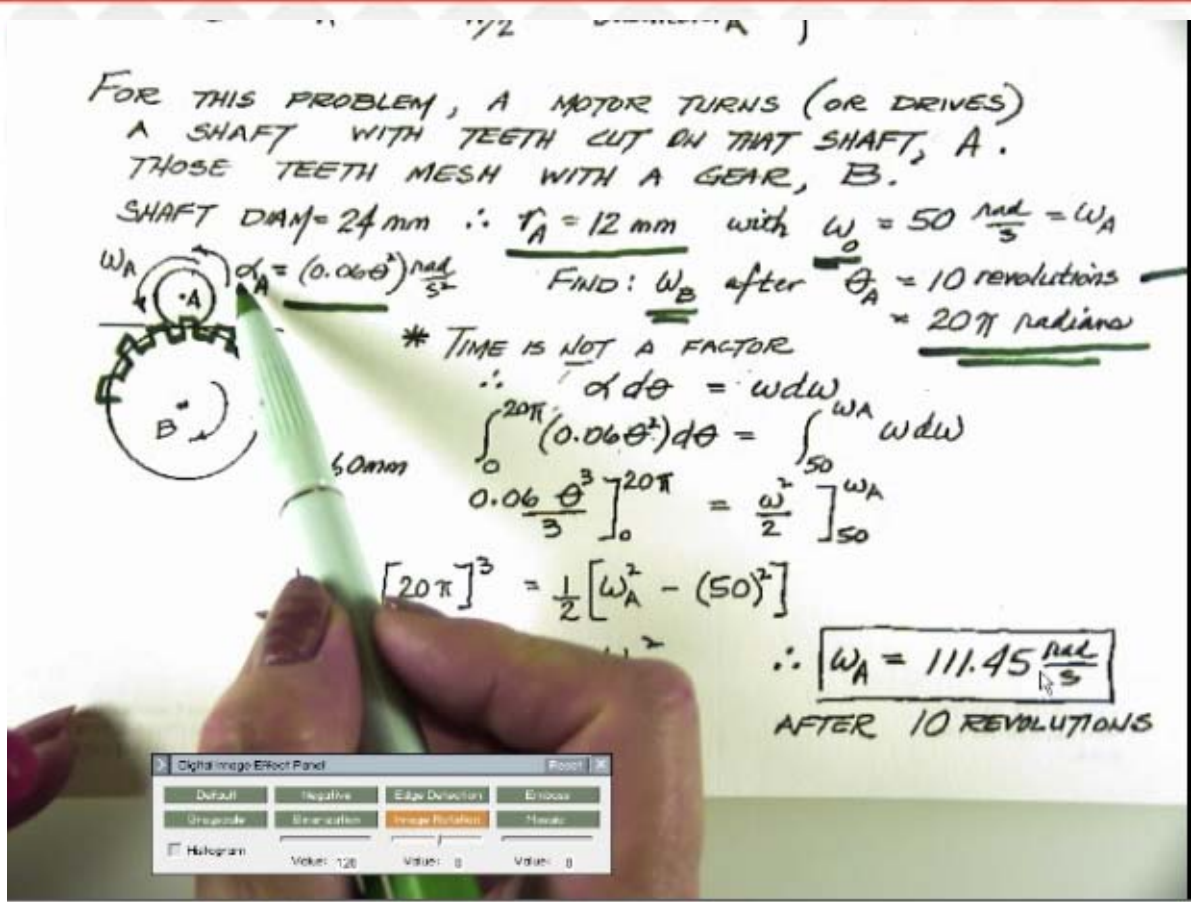 FOR THIS PROBLEM, A MOTOR TURNS (OR DRIVES)
A SHAFT WITH TEETH CUT ON THAT SHAFT, A.
THOSE TEETH MESH WITH A GEAR, B.
SHAFT DIAM = 24 mm ∴ r_A = 12 mm with ω_0 = 50 rad/s = ω_A
ω_A α_A = (0.06θ²) rad/s² FIND: ω_B after θ_A = 10 revolutions
A = 20π radians
* TIME IS NOT A FACTOR
∴ α dθ = ω dω
B ∫_0^{20π} (0.06θ²) dθ = ∫_{50}^{ω_A} ω dω
60mm 0.06 θ³/3 ]_0^{20π} = ω²/2 ]_{50}^{ω_A}
[20π]³ = 1/2 [ω_A² - (50)²]
∴ ω_A = 111.45 rad/s
AFTER 10 REVOLUTIONS
Digital Image Effect Panel Reset X
Default Negative Edge Detection Emboss
Grayscale Binarization Image Rotation Mosaic
Histogram Value: 128 Value: 0 Value: 8